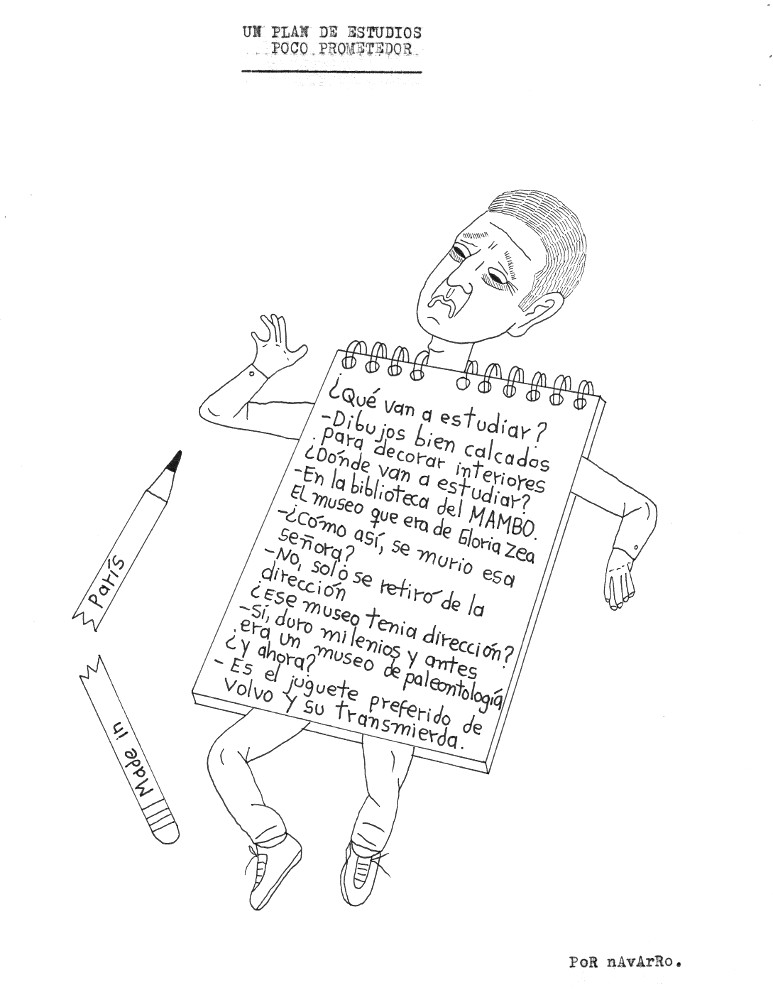 UN PLAN DE ESTUDIOS
POCO PROMETEDOR
¿Qué van a estudiar?
-Dibujos bien calcados
para decorar interiores
¿Dónde van a estudiar?
-En la biblioteca del MAMBO.
El museo que era de Gloria Zea
-¿Cómo así, se murio esa
señora?
-No, solo se retiró de la
dirección
¿Ese museo tenia dirección?
-Sí, duro milenios y antes
era un museo de paleontología
¿y ahora?
- Es el juguete preferido de
volvo y su transmierda.
París
Made in
PoR nAvArRo.